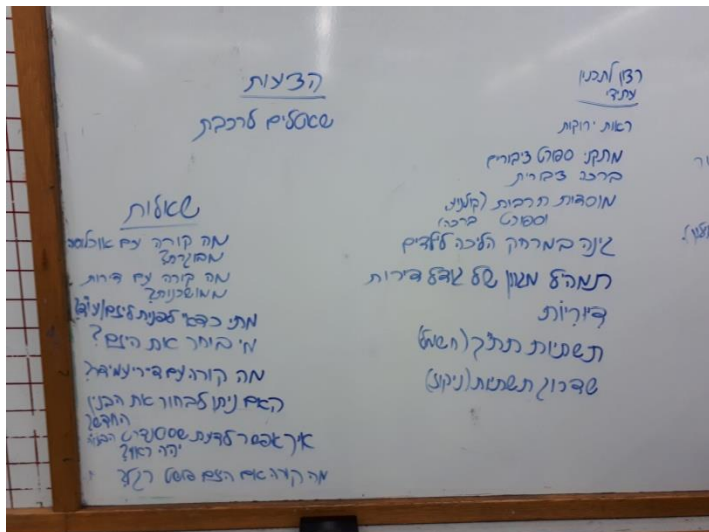 רצון לתכנון
עתידי
ריאות ירוקות
מתקני ספורט ציבוריים
ברכה ציבורית
מוסדות תרבות (קולנוע
וספורט ברכה)
גינה במרחק הליכה לילדים
תמהיל מגוון של גודל דירות
דיוריות
תשתיות תת"ק (חשמל)
שדרוג תשתיות (ניקוז)
הצעות
שאטלים לרכבת
שאלות
מה קורה עם אוכלוסיה
מבוגרת?
מה קורה עם דירות
ממושכנות?
מתי כדאי לפנות ליזם/עו"ד?
מי ביחר את היזם?
מה קורה עם דיירי עמידר?
האם ניתן לבחור את הבנין
החדש?
איך אפשר לדעת שסטנדרט הבניה
יהיה ראוי?
מה קורה אם היזם פושט רגל?